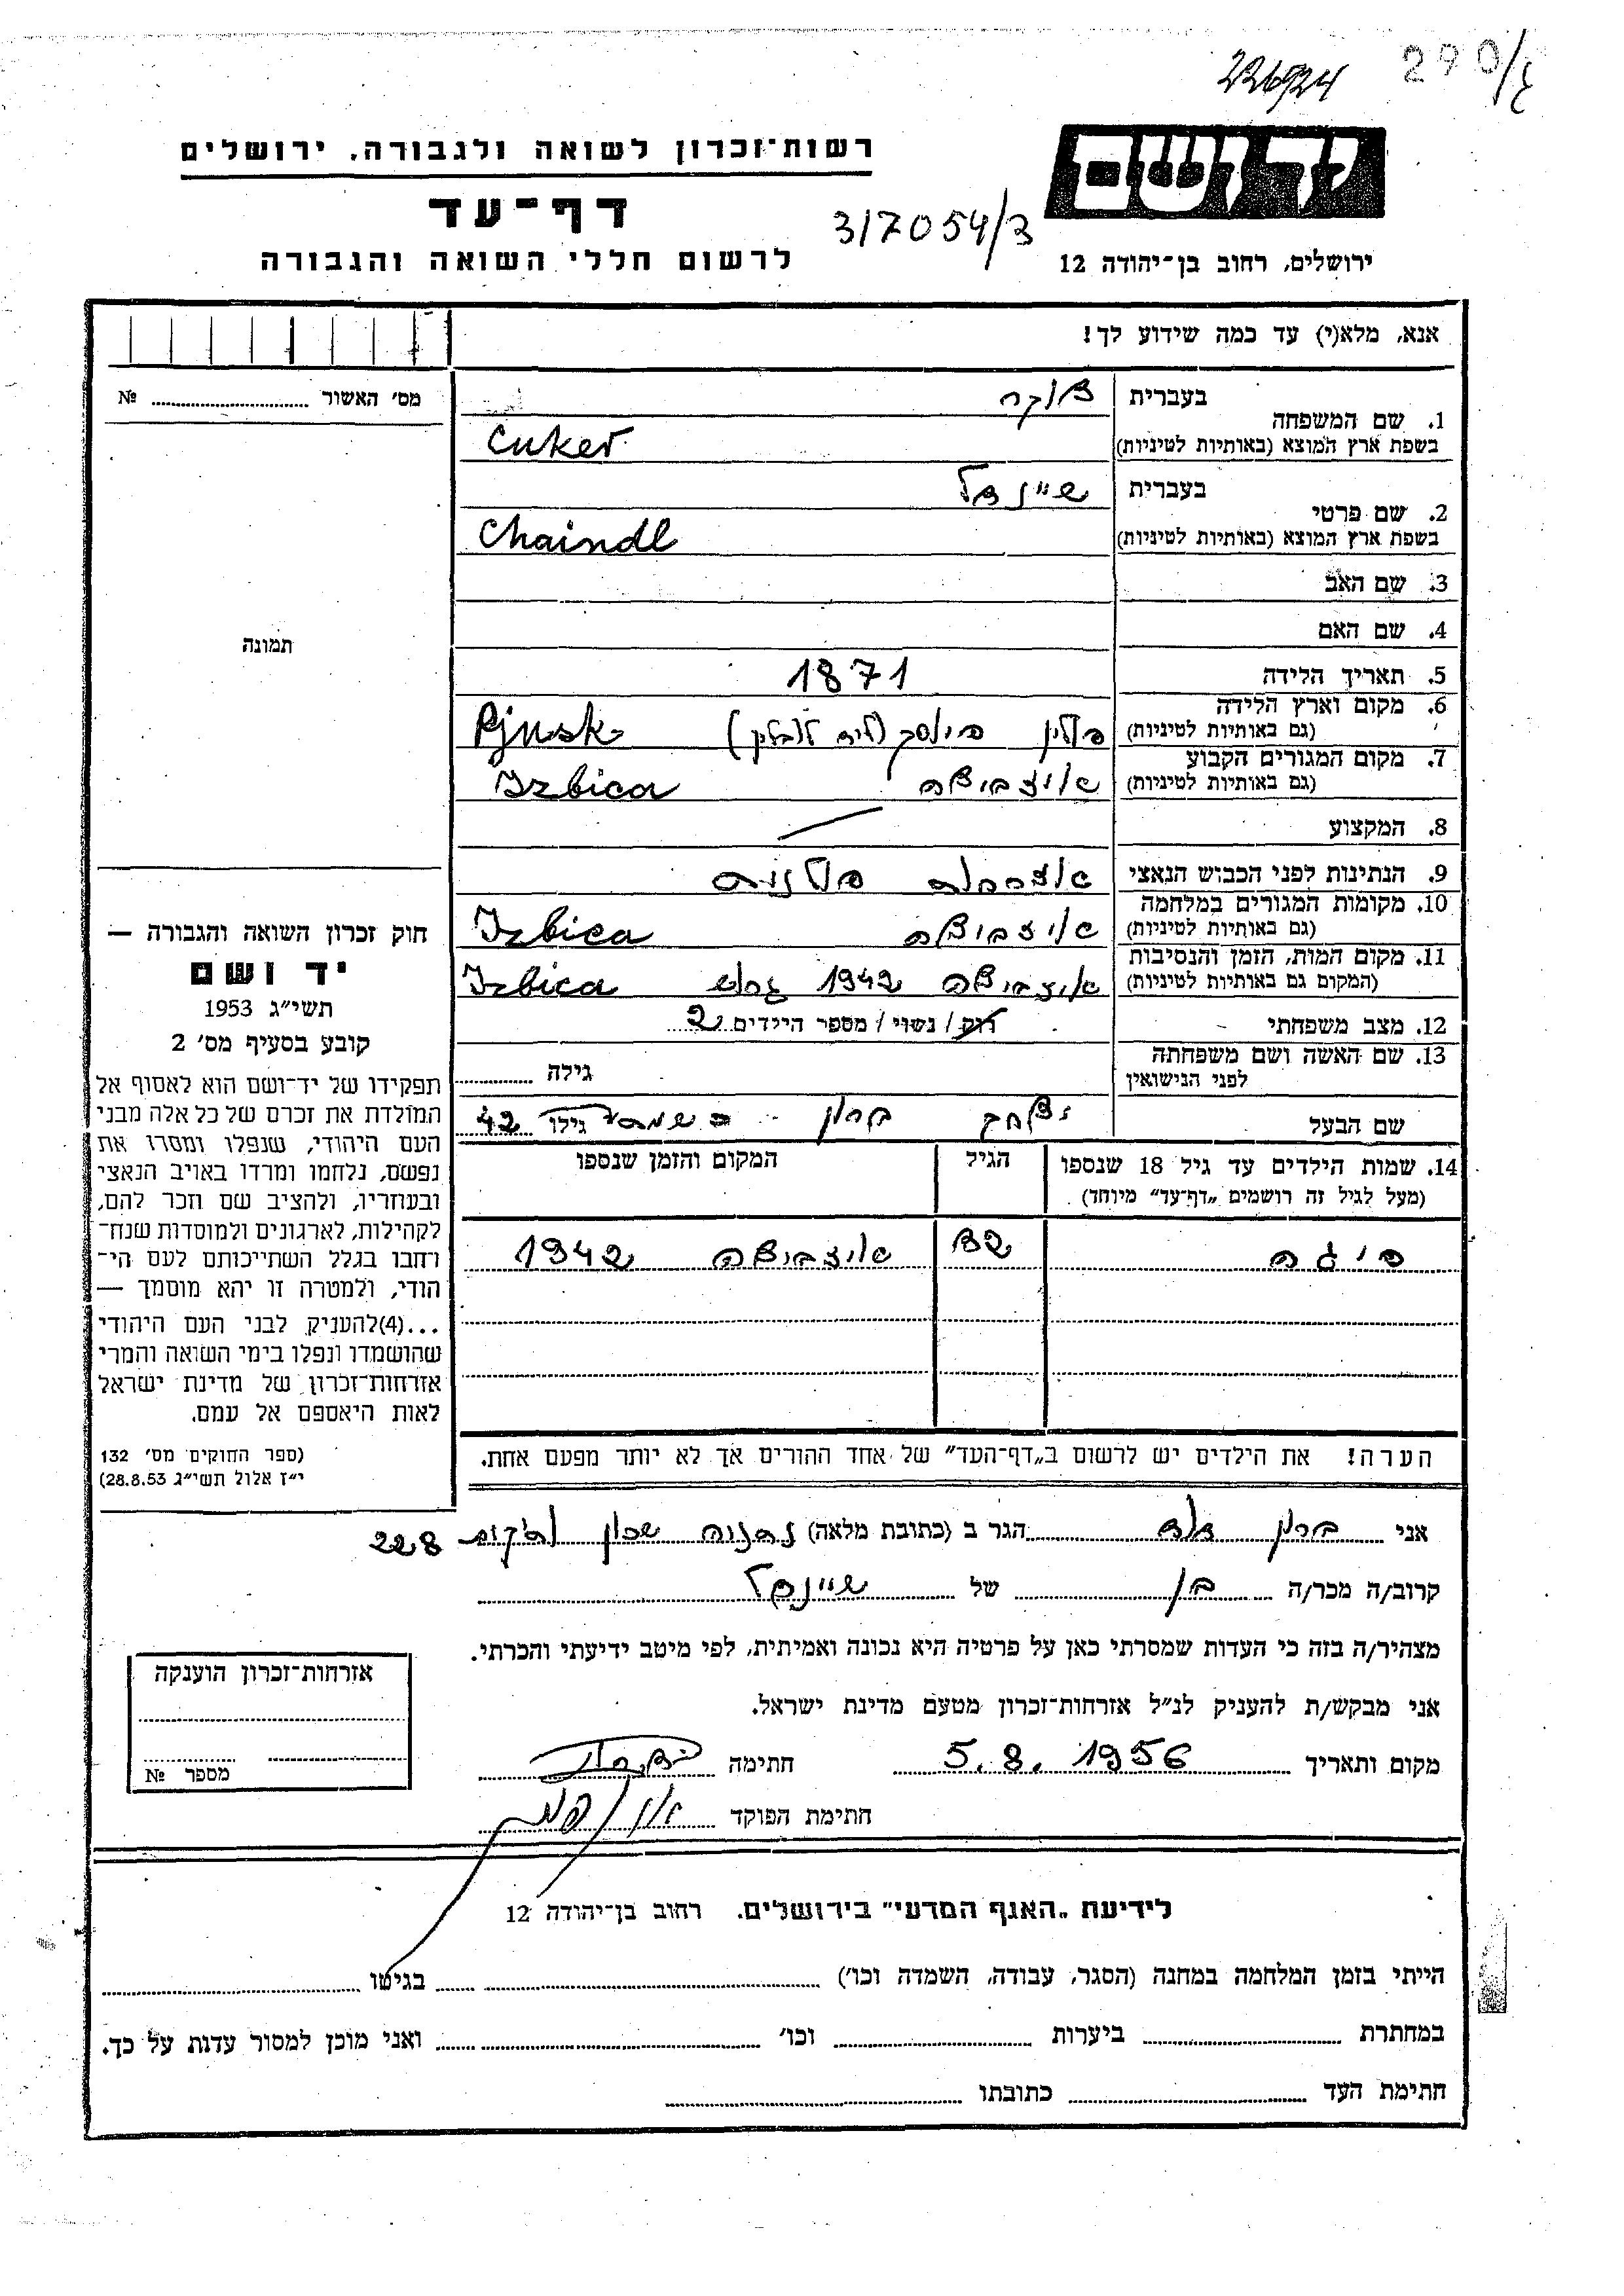 226924
290/
רשות־זכרון לשואה ולגבורה, ירושלים
יד ושם
דף־עד
317054/3
לרשום חללי השואה והגבורה
ירושלים, רחוב בן־יהודה 12
אנא, מלא(י) עד כמה שידוע לך!
מס׳ האשור № 
1. שם המשפחה
בעברית צוקר
בשפת ארץ המוצא (באותיות לטיניות) Cuker
2. שם פרטי
בעברית שיינדל
בשפת ארץ המוצא (באותיות לטיניות) Chaindl
3. שם האב
4. שם האם
תמונה
5. תאריך הלידה 1871
6. מקום וארץ הלידה
(גם באותיות לטיניות) פולין פינסק Pjnsk
7. מקום המגורים הקבוע
(גם באותיות לטיניות) איזביצה Izbica
8. המקצוע
9. הנתינות לפני הכבוש הנאצי אזרחות פולנית
10. מקומות המגורים במלחמה
(גם באותיות לטיניות) איזביצה Izbica
11. מקום המות, הזמן והנסיבות
(המקום גם באותיות לטיניות) איזביצה 1942 Izbica
12. מצב משפחתי רוק / נשוי / מספר הילדים 2
13. שם האשה ושם משפחתה
לפני הנישואין גילה
שם הבעל יצחק ברון גילו 42
14. שמות הילדים עד גיל 18 שנספו
(מעל לגיל זה רושמים „דף־עד״ מיוחד)
הגיל
המקום והזמן שנספו
פיגה 32 איזביצה 1942
הערה! את הילדים יש לרשום ב„דף־העד״ של אחד ההורים אך לא יותר מפעם אחת.
חוק זכרון השואה והגבורה —
יד ושם
תשי״ג 1953
קובע בסעיף מס׳ 2
תפקידו של יד־ושם הוא לאסוף אל
המולדת את זכרם של כל אלה מבני
העם היהודי, שנפלו ומסרו את
נפשם, נלחמו ומרדו באויב הנאצי
ובעוזריו, ולהציב שם וזכר להם,
לקהילות, לארגונים ולמוסדות שנח־
רחבו בגלל השתייכותם לעם הי־
הודי, ולמטרה זו יהא מוסמך —
...(4)להעניק לבני העם היהודי
שהושמדו ונפלו בימי השואה והמרי
אזרחות־זכרון של מדינת ישראל
לאות היאספם אל עמם.
(ספר החוקים מס׳ 132
י״ז אלול תשי״ג 28.8.53)
אני ברון הגר ב (כתובת מלאה) נתניה שכון ותיקים 228
קרוב/ה מכר/ה בן של שיינדל
מצהיר/ה בזה כי העדות שמסרתי כאן על פרטיה היא נכונה ואמיתית, לפי מיטב ידיעתי והכרתי.
אני מבקש/ת להעניק לנ״ל אזרחות־זכרון מטעם מדינת ישראל.
מקום ותאריך 5.8.1956 חתימה
חתימת הפוקד
אזרחות־זכרון הוענקה
מספר №
לידיעת „האגף המדעי״ בירושלים. רחוב בן־יהודה 12
הייתי בזמן המלחמה במחנה (הסגר, עבודה, השמדה וכו׳) בגיטו
במחתרת ביערות וכו׳ ואני מוכן למסור עדות על כך.
חתימת העד כתובתו